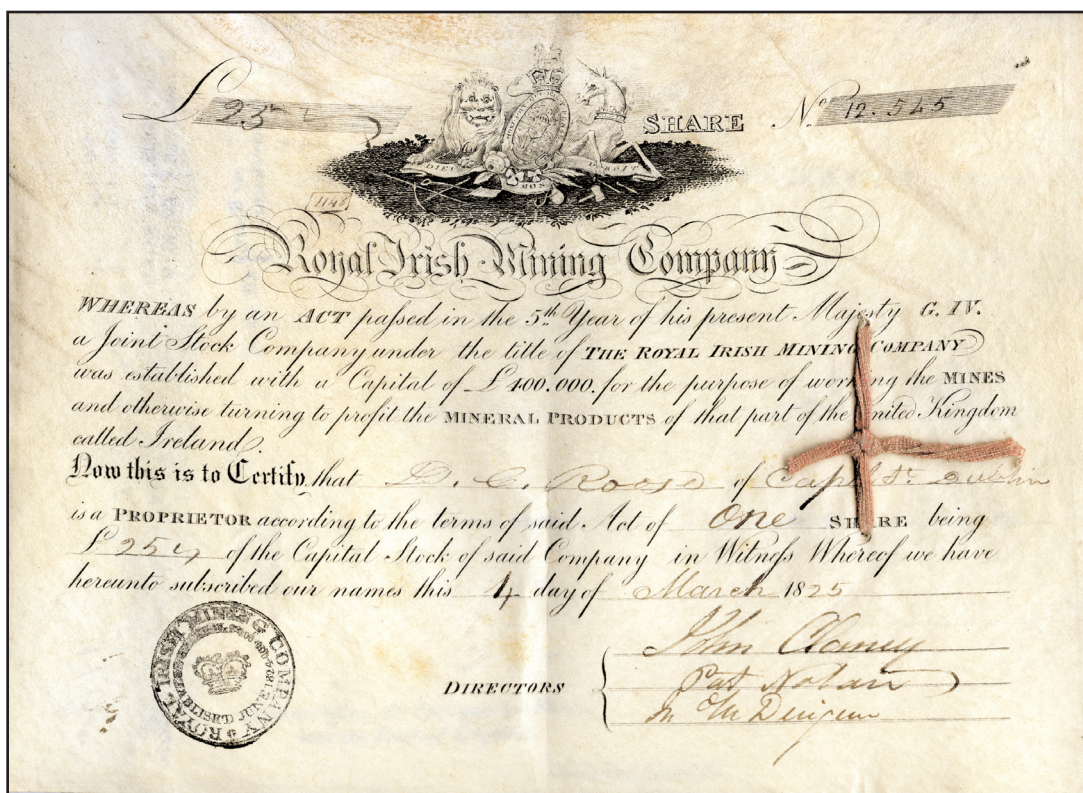 £ 25
SHARE No. 12.545
DIEU ET MON DROIT
1148
Royal Irish Mining Company
WHEREAS by an ACT passed in the 5th Year of his present Majesty G. IV.
a Joint Stock Company under the title of THE ROYAL IRISH MINING COMPANY
was established with a Capital of £400.000. for the purpose of working the MINES
and otherwise turning to profit the MINERAL PRODUCTS of that part of the United Kingdom
called Ireland.
Now this is to Certify, that D. C. Roose of Capel St. Dublin
is a PROPRIETOR according to the terms of said Act of One SHARE being
£25 of the Capital Stock of said Company in Witness Whereof we have
hereunto subscribed our names this 4 day of March 1825
John Clancy
DIRECTORS Pat Nolan
ROYAL IRISH MINING COMPANY